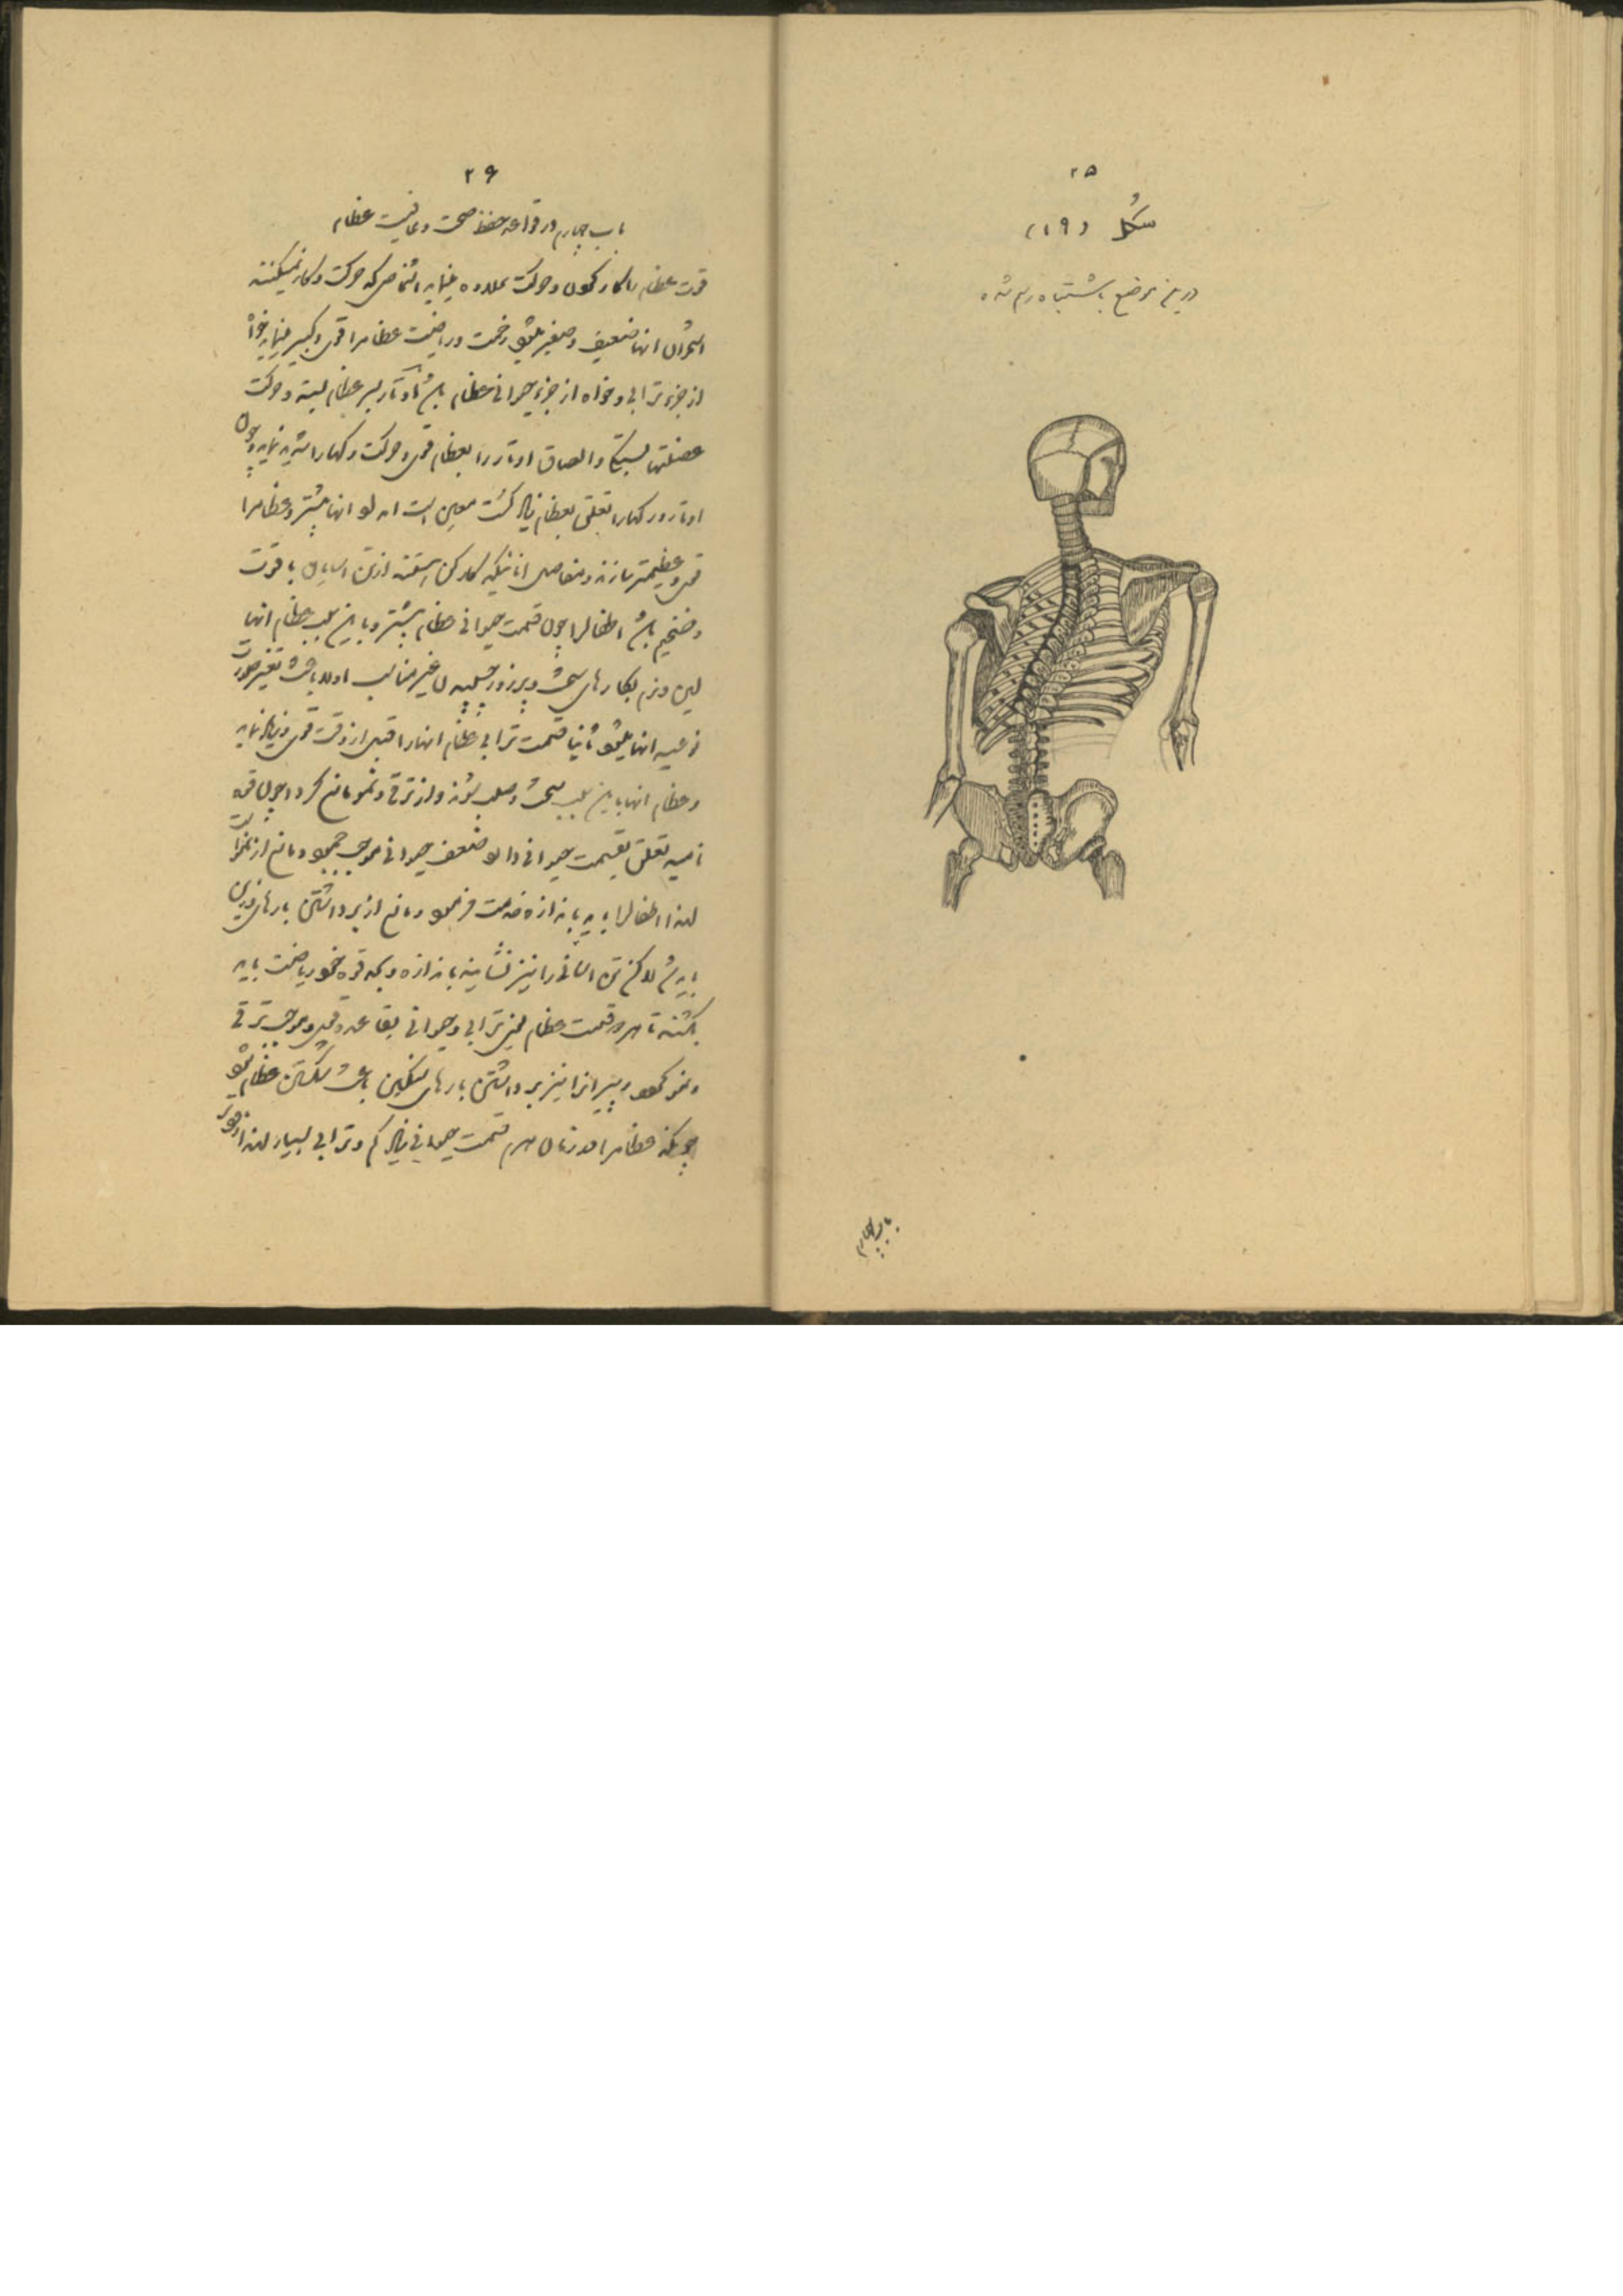 ۲۵
شکل (۱۹)
درین موضع باشتباه رسم شده
باب چهارم
۲۶
باب چهارم در قواعد حفظ صحت و عافیت عظام
قوت عظام با کار کردن و حرکت علاوه مینماید اشخاصی که حرکت و کار نمیکنند
استخوان انها ضعیف و صغیر میشود زحمت و ریاضت عظام را قوی و کبیر مینماید خواه
از جزء ترابی و خواه از جزء حیوانی عظام باشد اوتار بسر عظام بسته و حرکت
عضلتها بستگی و الصاق اوتار را بعظام قوی و حرکت رکها را شدید نماید و چون
اوتار و رکها را تعلق بعظام زیاد کشت معین است که نمو انها بیشتر و عظام را
قوی و عظیمتر سازند و مفاصل انانیکه کار کن هستند ازین اسباب با قوت
و ضخیم باشد اطفال را چون قسمت حیوانی عظام بیشتر و باین سبب عظام انها
لین و نرم بکارهای سخت و پر زور چسپیدن غیر مناسب اولا باعث تغیر صورت
نوعیه انها میشود ثانیا قسمت ترابی عظام انها را قبل از وقت قوی و زیاد نماید
و عظام انها باین سبب سخت و صلب شوند و از ترقی و نمو مانع کردد چون قوه
نامیه تعلق بقسمت حیوانی دارد ضعف حیوانی موجب جمود و مانع از نمو است
لهذا اطفال را باید باندازه خدمت فرمود و مانع از برداشتن بارهای وزین
باید شد لاکن تن اسانی را نیز نشایند باندازه و بحد قوه خود ریاضت باید
بکشند تا هر دو قسمت عظام یعنی ترابی و حیوانی بقاعده قوی و موجب ترقی
و نمو کردد و پیرانرا نیز برداشتن بارهای سنکین باعث شکستن عظام شود
چونکه عظام را در زمان هرم قسمت حیوانی زیاد کم و ترابی بسیار لهذا